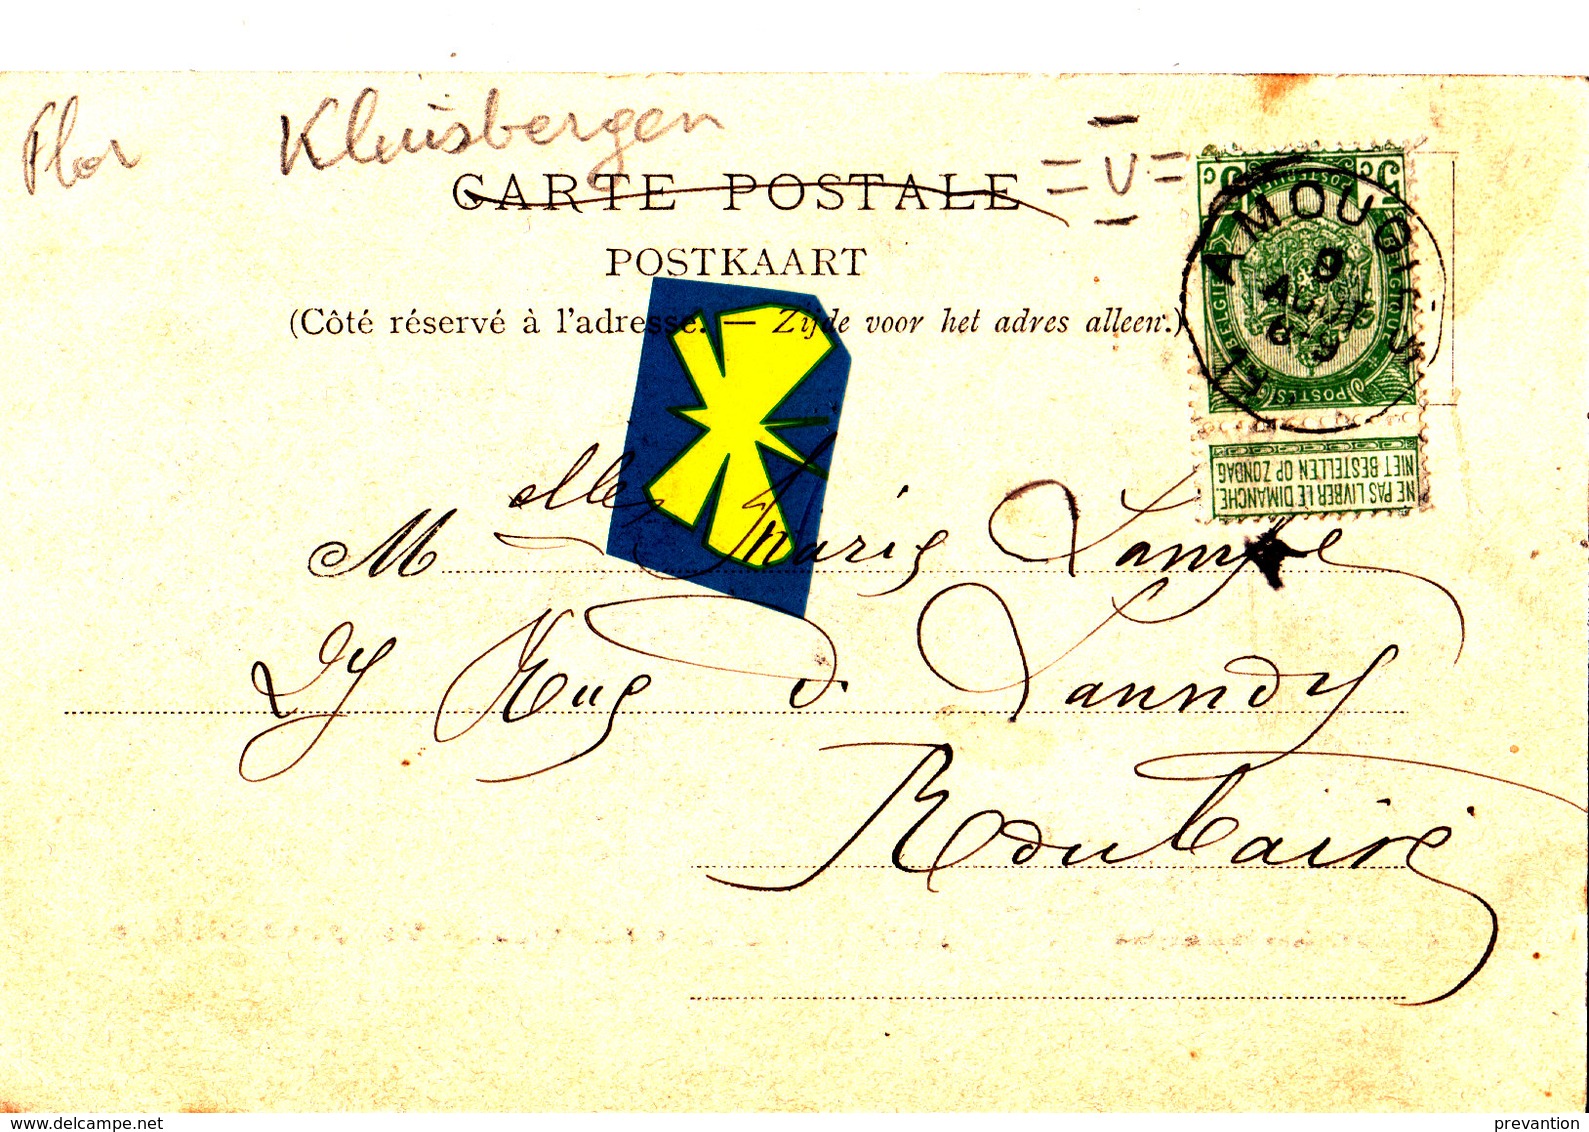 Flor Kluisbergen
= U =
CARTE POSTALE
POSTKAART
(Côté réservé à l'adresse. — Zijde voor het adres alleen.)
5 c 5 c
POSTES
AMOUGIES
9
AOUT
NE PAS LIVRER LE DIMANCHE.
NIET BESTELLEN OP ZONDAG
Melle Marie
Rue d Lannoy
Roubaix
delcampe.net
prevantion